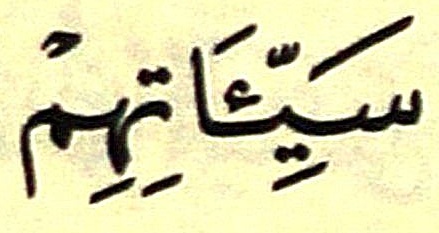 سَيِّئَاتِهِمْ